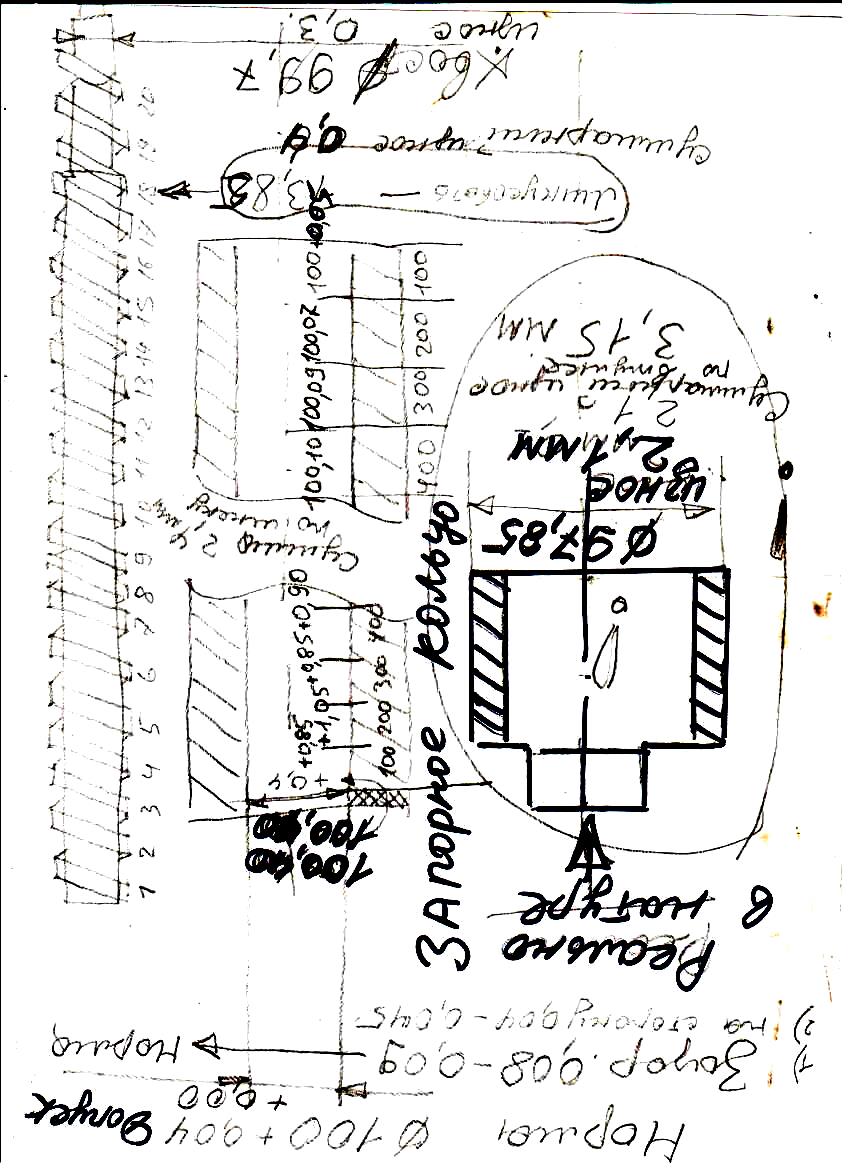 Норма: Ø 100 + 0,04 Допуск
+ 0,00
1) Зазор. 0,08 - 0,09
Норма
2) на сторону 0,04 - 0,045
Реально
в натуре
Запорное кольцо
100,40
100,40
+0,4
+0,85
+1,05
+0,85
+0,90
100 200 300 400
Ø 97,85
износ
2,1 мм
Суммарный износ
по втулке
3,15 мм
Суммар 2,4 мм
по шнеку
100,10
100,09
100,07
400 300 200 100
3,85
Суммарный износ 0,4
Хвост Ø 99,7
износ 0,3
1 2 3 4 5 6 7 8 9 10 11 12 13 14 15 16 17 18 19 20